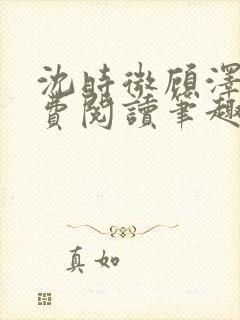 沈時微顧澤
費閱讀筆趣
真如